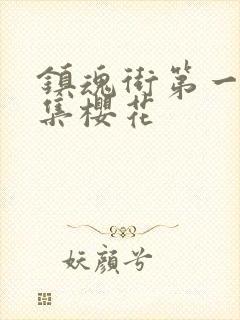 鎮魂街第一
集櫻花
妖顏兮